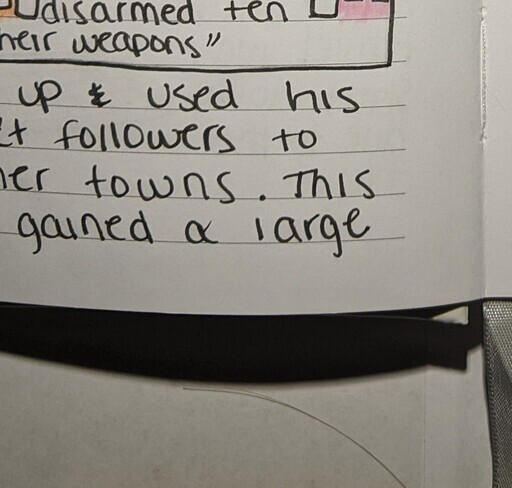 disarmed ten
heir weapons"
up & used his
et followers to
her towns. This
gained a large